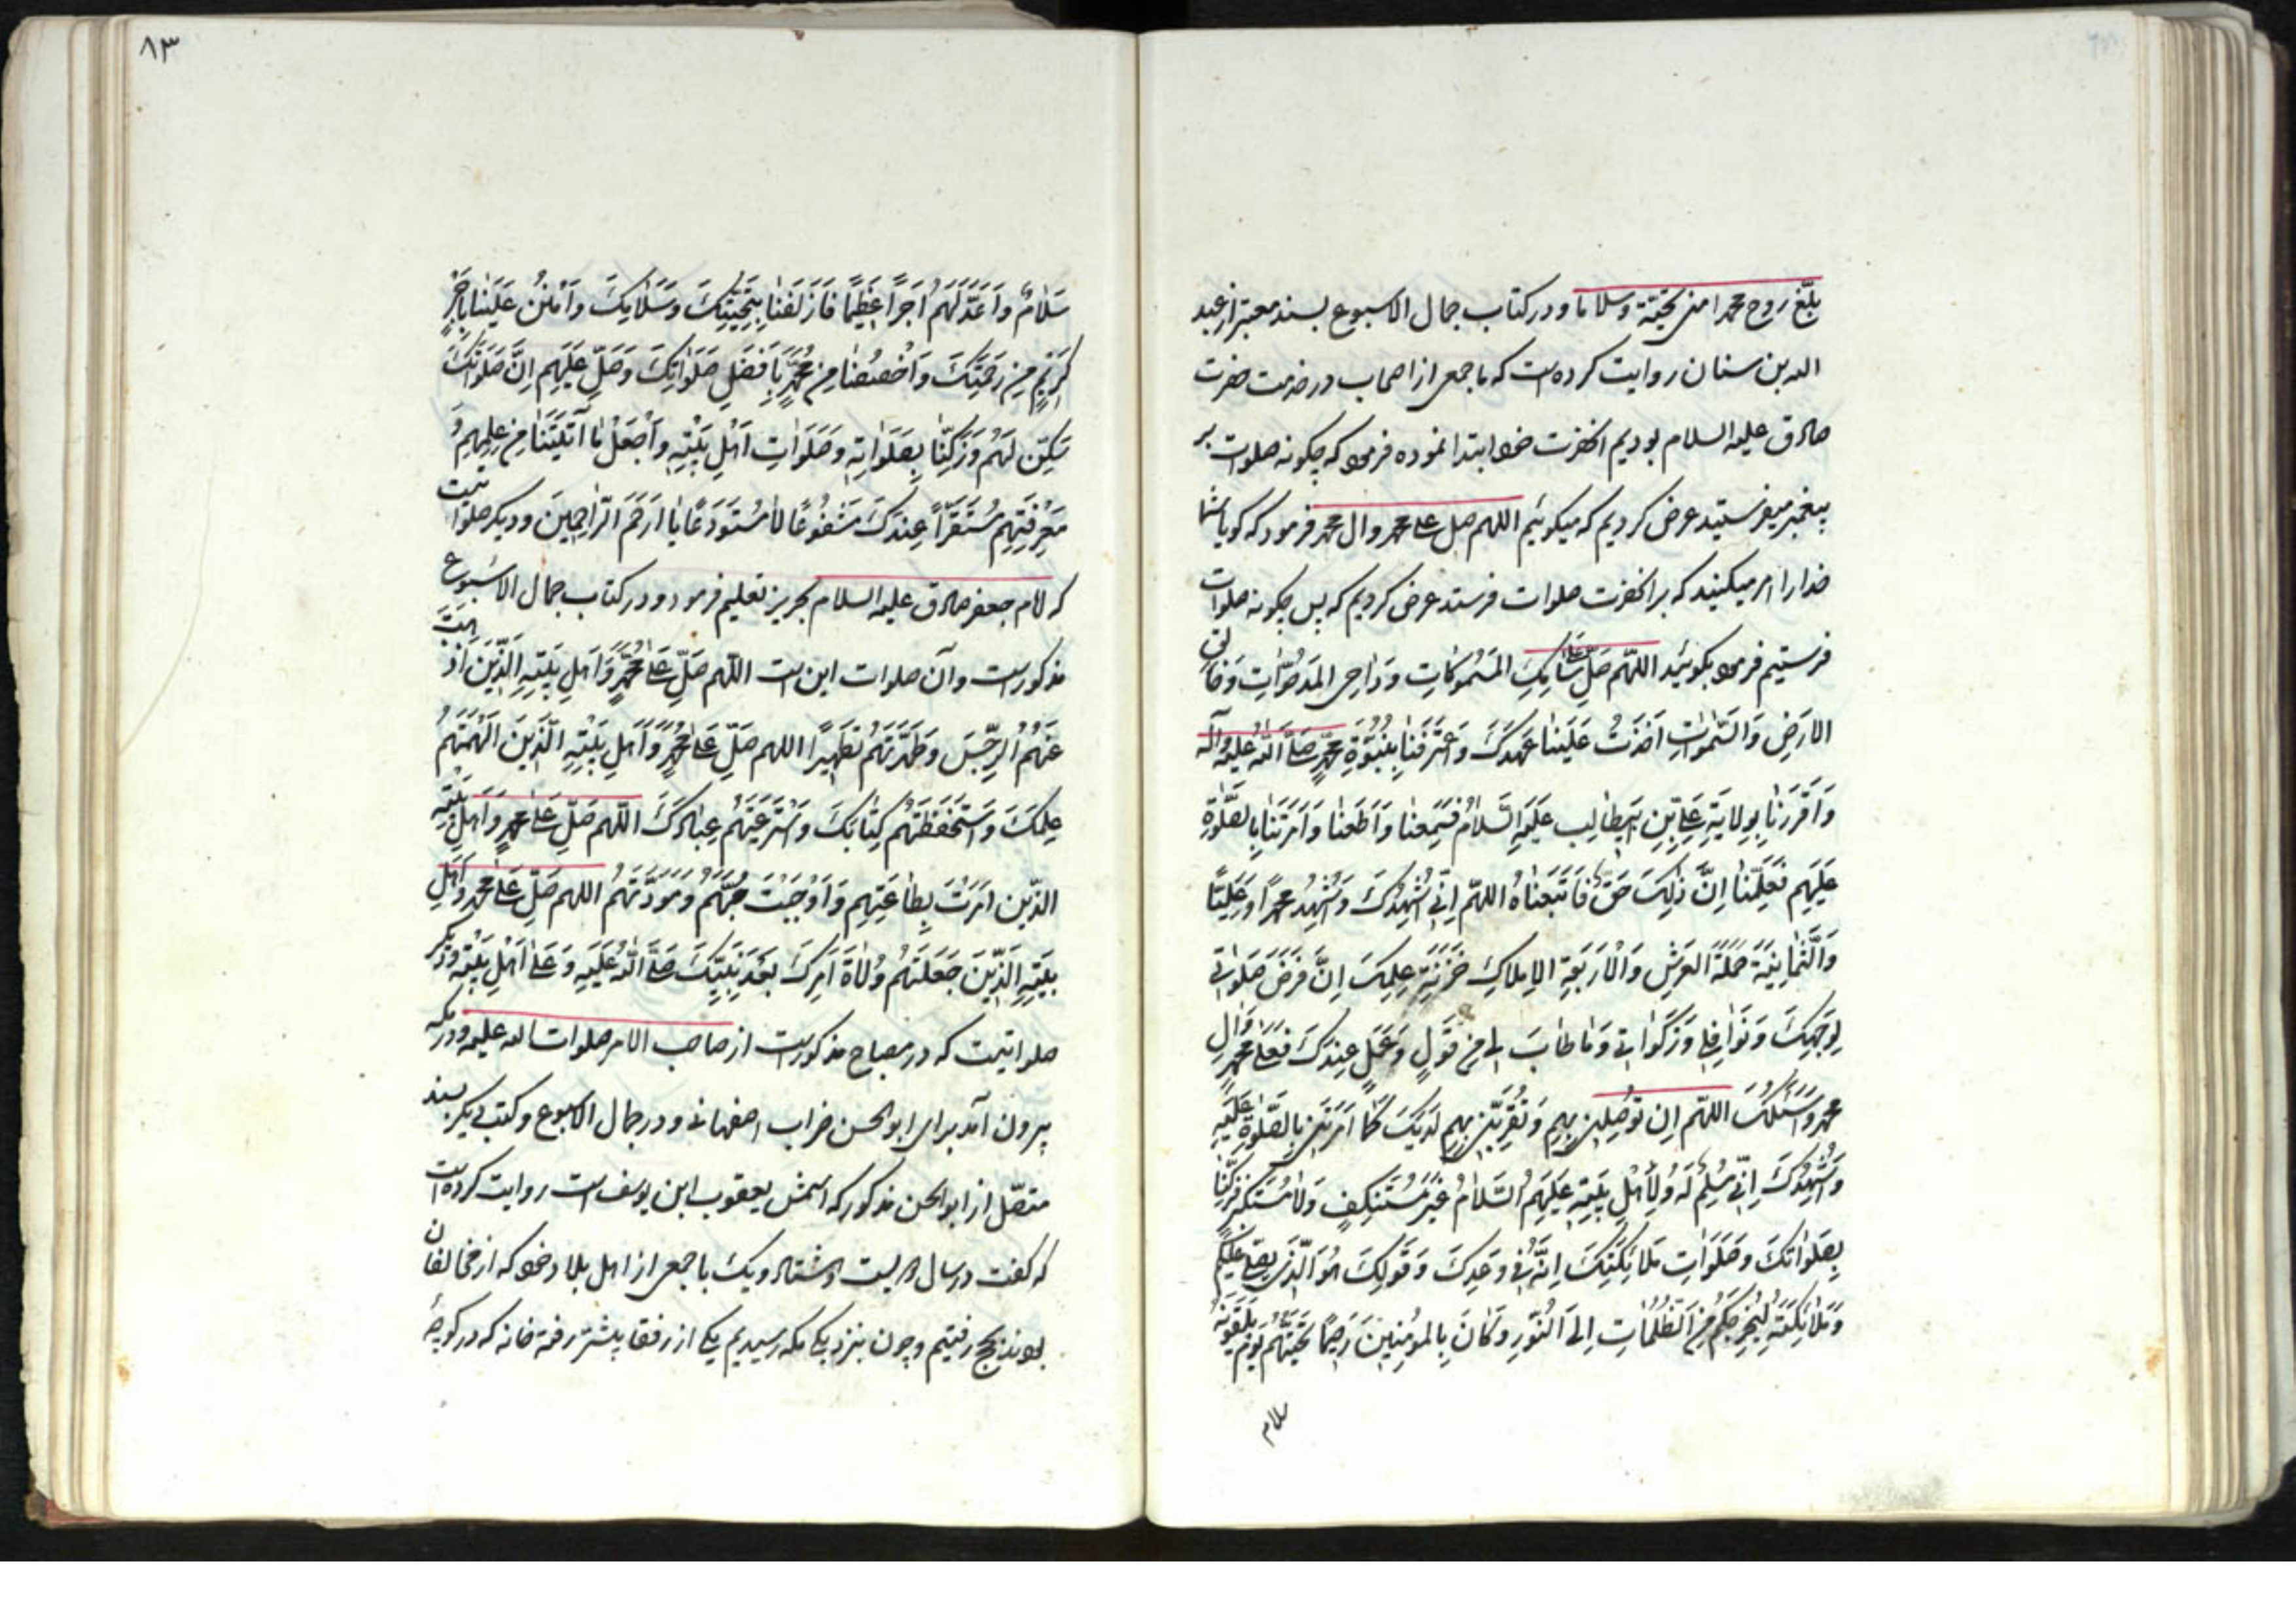 بلّغ روح محمد امنی تحیّة وسلاما ودر کتاب جمال الاسبوع بسند معتبر از عبد
الله بن سنان روایت کرده است که با جمعی از اصحاب در خدمت حضرت
صادق علیه السلام بودیم آنحضرت خود ابتدا نموده فرمود که چگونه صلوات بر
پیغمبر میفرستید عرض کردیم که میگوئیم اللهم صل علی محمد وال محمد فرمود که گویا شما
خدا را امر میکنید که بر آنحضرت صلوات فرستد عرض کردیم که پس چگونه صلوات
فرستیم فرمود بگوئید اللّهمّ صَلِّ سٰامِكِ المَسْمُوكاتِ وَدٰاحِی المَدحُوّٰاتِ وَخٰالِقَ
الاَرَضِ وَالسَّمٰوٰاتِ اَخَذتَ عَلَینٰا عَهدَكَ وَعَتَرَفَنٰا بِنُبُوَّةِ مُحَمَّدٍ صَلَّی اللّٰهُ عَلَیهِ وَآلِه
وَاَقرَرنٰا بِوِلایَةِ عَلِیِّ بنِ ابیطالِب عَلَیهِ السَّلاٰمُ فَسَمِعنٰا وَاَطَعنٰا وَاَمَرتَنٰا بِالصَّلوٰةِ
عَلَیهِم فَعَلِمنٰا اِنَّ ذٰلِكَ حَقٌّ فَاتَّبَعنٰاهُ اللّهمّ اِنّی اُشهِدُكَ وَاُشهِدُ محمداً وَعَلِیًّا
وَالثَّمٰانِیَةَ حَمَلَةَ العَرشِ وَالاَربَعَةِ الاِملاكِ خَزَنَةِ عِلمِكَ اِنَّ فَرضَ صَلَوٰاتی
لِوَجهِكَ وَنَوٰافِلی وَزَكَوٰاتی وَمٰا طٰابَ لی مِن قَولٍ وَعَمَلٍ عِندَكَ فَعَلیٰ مُحَمَّدٍ وَالِ
محمد وَاَسئَلُكَ اللّهمّ اِن تُوصِلَنی بِهِم وَتُقَرِّبَنی بِهِم لَدَیكَ كَمٰا اَمَرتَنی بِالصَّلوٰةِ عَلَیهِ
وَاُشهِدُكَ اِنّی مُسَلِّمٌ لَهُ وَلِأَهلِ بَیتِهِ عَلَیهِمُ السَّلاٰمُ غَیرَ مُستَنكِفٍ وَلاٰ مُستَكبِرٍ فَزَكِّنٰا
بِصَلَوٰاتِكَ وَصَلَوٰاتِ مَلاٰئِكَتِكَ اِنَّهُ فی وَعدِكَ وَقَولِكَ هُوَ الَّذی یُصَلّی عَلَیكُم
وَمَلاٰئِكَتُهُ لِیُخرِجَكُم مِنَ الظُّلُمٰاتِ اِلَی النُّورِ وَكٰانَ بِالمُؤمِنینَ رَحیماً تَحِیَّتُهُم یَومَ یَلقَونَهُ
سلام
۸۳
سَلاٰمٌ وَاَعَدَّ لَهُم اَجراً عَظیماً فَاَزلَفنٰا بِتَحِیَّتِكَ وَسَلاٰمِكَ وَامنُن عَلَینٰا بِاَجرٍ
كَریمٍ مِن رَحمَتِكَ وَاخصُصنٰا مِن مُحَمَّدٍ بِاَفضَلِ صَلَوٰاتِكَ وَصَلِّ عَلَیهِم اِنَّ صَلَوٰاتَكَ
سَكَنٌ لَهُم وَزَكِّنٰا بِصَلَوٰاتِهِ وَصَلَوٰاتِ اَهلِ بَیتِهِ وَاجعَل مٰا آتَیتَنٰا مِن عِلمِهِم وَ
مَعرِفَتِهِم مُستَقَرّاً عِندَكَ مَشفُوعًا لاٰ مُستَودَعًا یٰا اَرحَمَ الرّٰاحِمینَ ودیگر صلواتیست
که امام جعفر صادق علیه السلام بحریز تعلیم فرمود ودر کتاب جمال الاسبوع
مذکور است وآن صلوات این است اللّهم صَلِّ عَلیٰ مُحَمَّدٍ وَاَهلِ بَیتِهِ الَّذینَ اَذهَبتَ
عَنهُمُ الرِّجسَ وَطَهَّرتَهُم تَطهیرًا اللهم صَلِّ عَلیٰ مُحَمَّدٍ وَاَهلِ بَیتِهِ الَّذینَ اَلهَمتَهُم
عِلمَكَ وَاستَحفَظتَهُم كِتٰابَكَ وَاستَرعَیتَهُم عِبٰادَكَ اللّهم صَلِّ عَلیٰ محمدٍ وَاَهلِ بَیتِهِ
الَّذینَ اَمَرتَ بِطٰاعَتِهِم وَاَوجَبتَ حُبَّهُم وَمَوَدَّتَهُم اللهم صَلِّ عَلیٰ محمد وَاَهلِ
بَیتِهِ الَّذینَ جَعَلتَهُم وُلاٰةَ اَمرِكَ بَعدَ نَبِیِّكَ صَلَّی اللّٰهُ عَلَیهِ وَعَلیٰ اَهلِ بَیتِهِ ودیگر
صلواتیست که در مصباح مذکور است از صاحب الامر صلوات الله علیه ودر مکه
بیرون آمد برای ابوالحسن ضراب اصفهانی ودر جمال الاسبوع وکتب دیگر بسند
متصّل از ابوالحسن مذکور که اسمش یعقوب ابن یوسف است روایت کرده است
که گفت در سال دویست وهشتاد ویک با جمعی از اهل بلاد خود که از مخالفان
بودند بحج رفتیم وچون بنزدیکی مکه رسیدیم یکی از رفقا پیشتر رفته خانه که در کوچهٔ